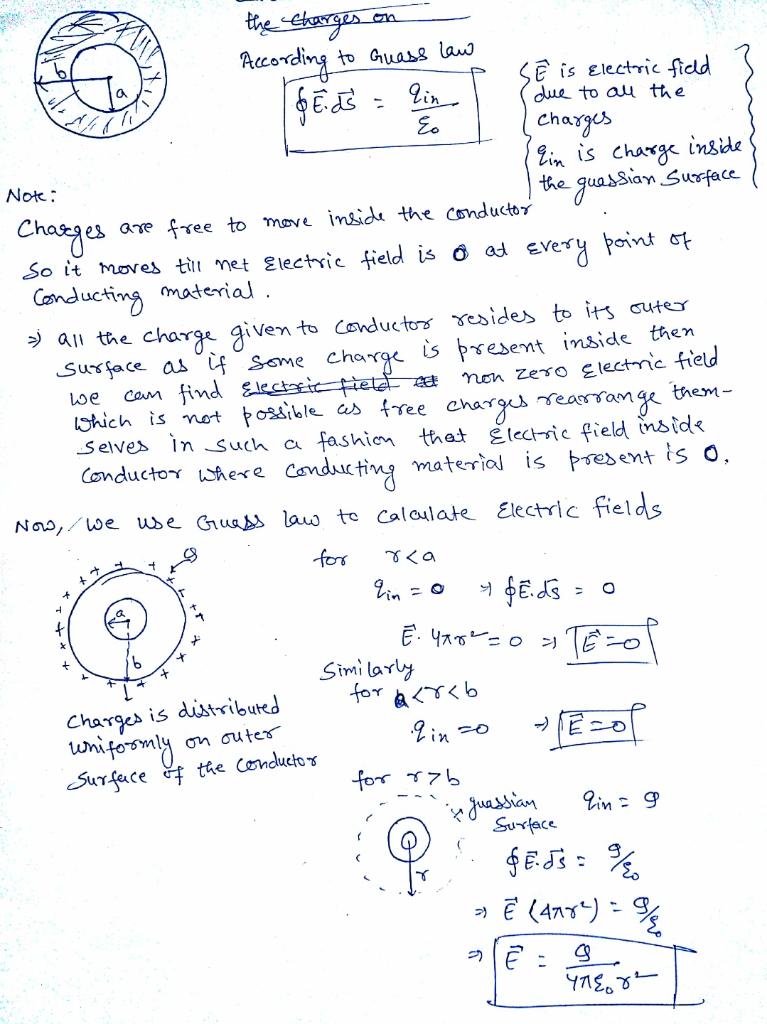 the charges on
According to Guass law
∮E⃗.ds⃗ = qin/ε0
{ E⃗ is Electric field
due to all the
charges
qin is charge inside
the guassian surface }
b
a
Note:
Charges are free to move inside the conductor
So it moves till net Electric field is 0 at every point of
Conducting material.
⇒ all the charge given to conductor resides to its outer
surface as if some charge is present inside then
we can find Electric field at non zero Electric field
which is not possible as free charges rearrange them-
selves in such a fashion that Electric field inside
conductor where conducting material is present is 0.
Now, we use Guass law to calculate Electric fields
for r<a
qin = 0 ⇒ ∮E⃗.ds⃗ = 0
E⃗. 4πr² = 0 ⇒ E⃗=0
Q
a
b
Charges is distributed
uniformly on outer
surface of the conductor
Similarly
for a<r<b
qin =0 ⇒ E=0
for r>b
guassian
surface
qin = Q
r
∮E⃗.ds⃗ = Q/ε0
⇒ E⃗ (4πr²) = Q/ε0
⇒ E⃗ = Q/4πε0r²